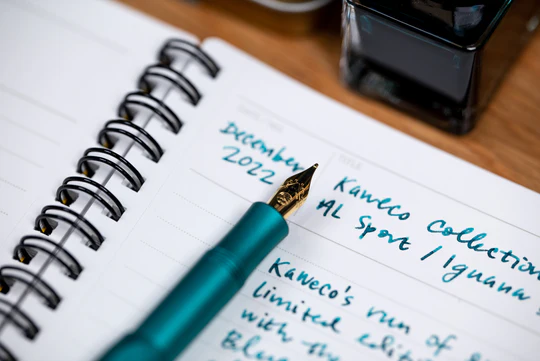 December
2022
Kaweco Collection
AL Sport / Iguana
Kaweco's run of
limited
with the